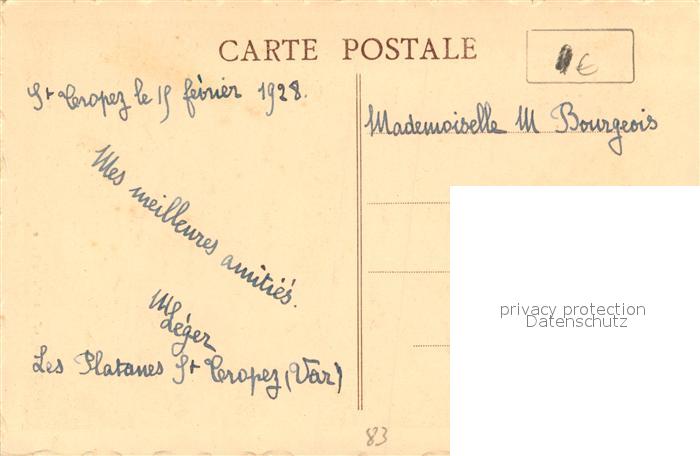 CARTE POSTALE
€
St Tropez le 15 février 1928.
Mademoiselle M Bourgeois
Mes meilleures amitiés.
M Léger
Les Platanes St Tropez (Var)
privacy protection
Datenschutz
83